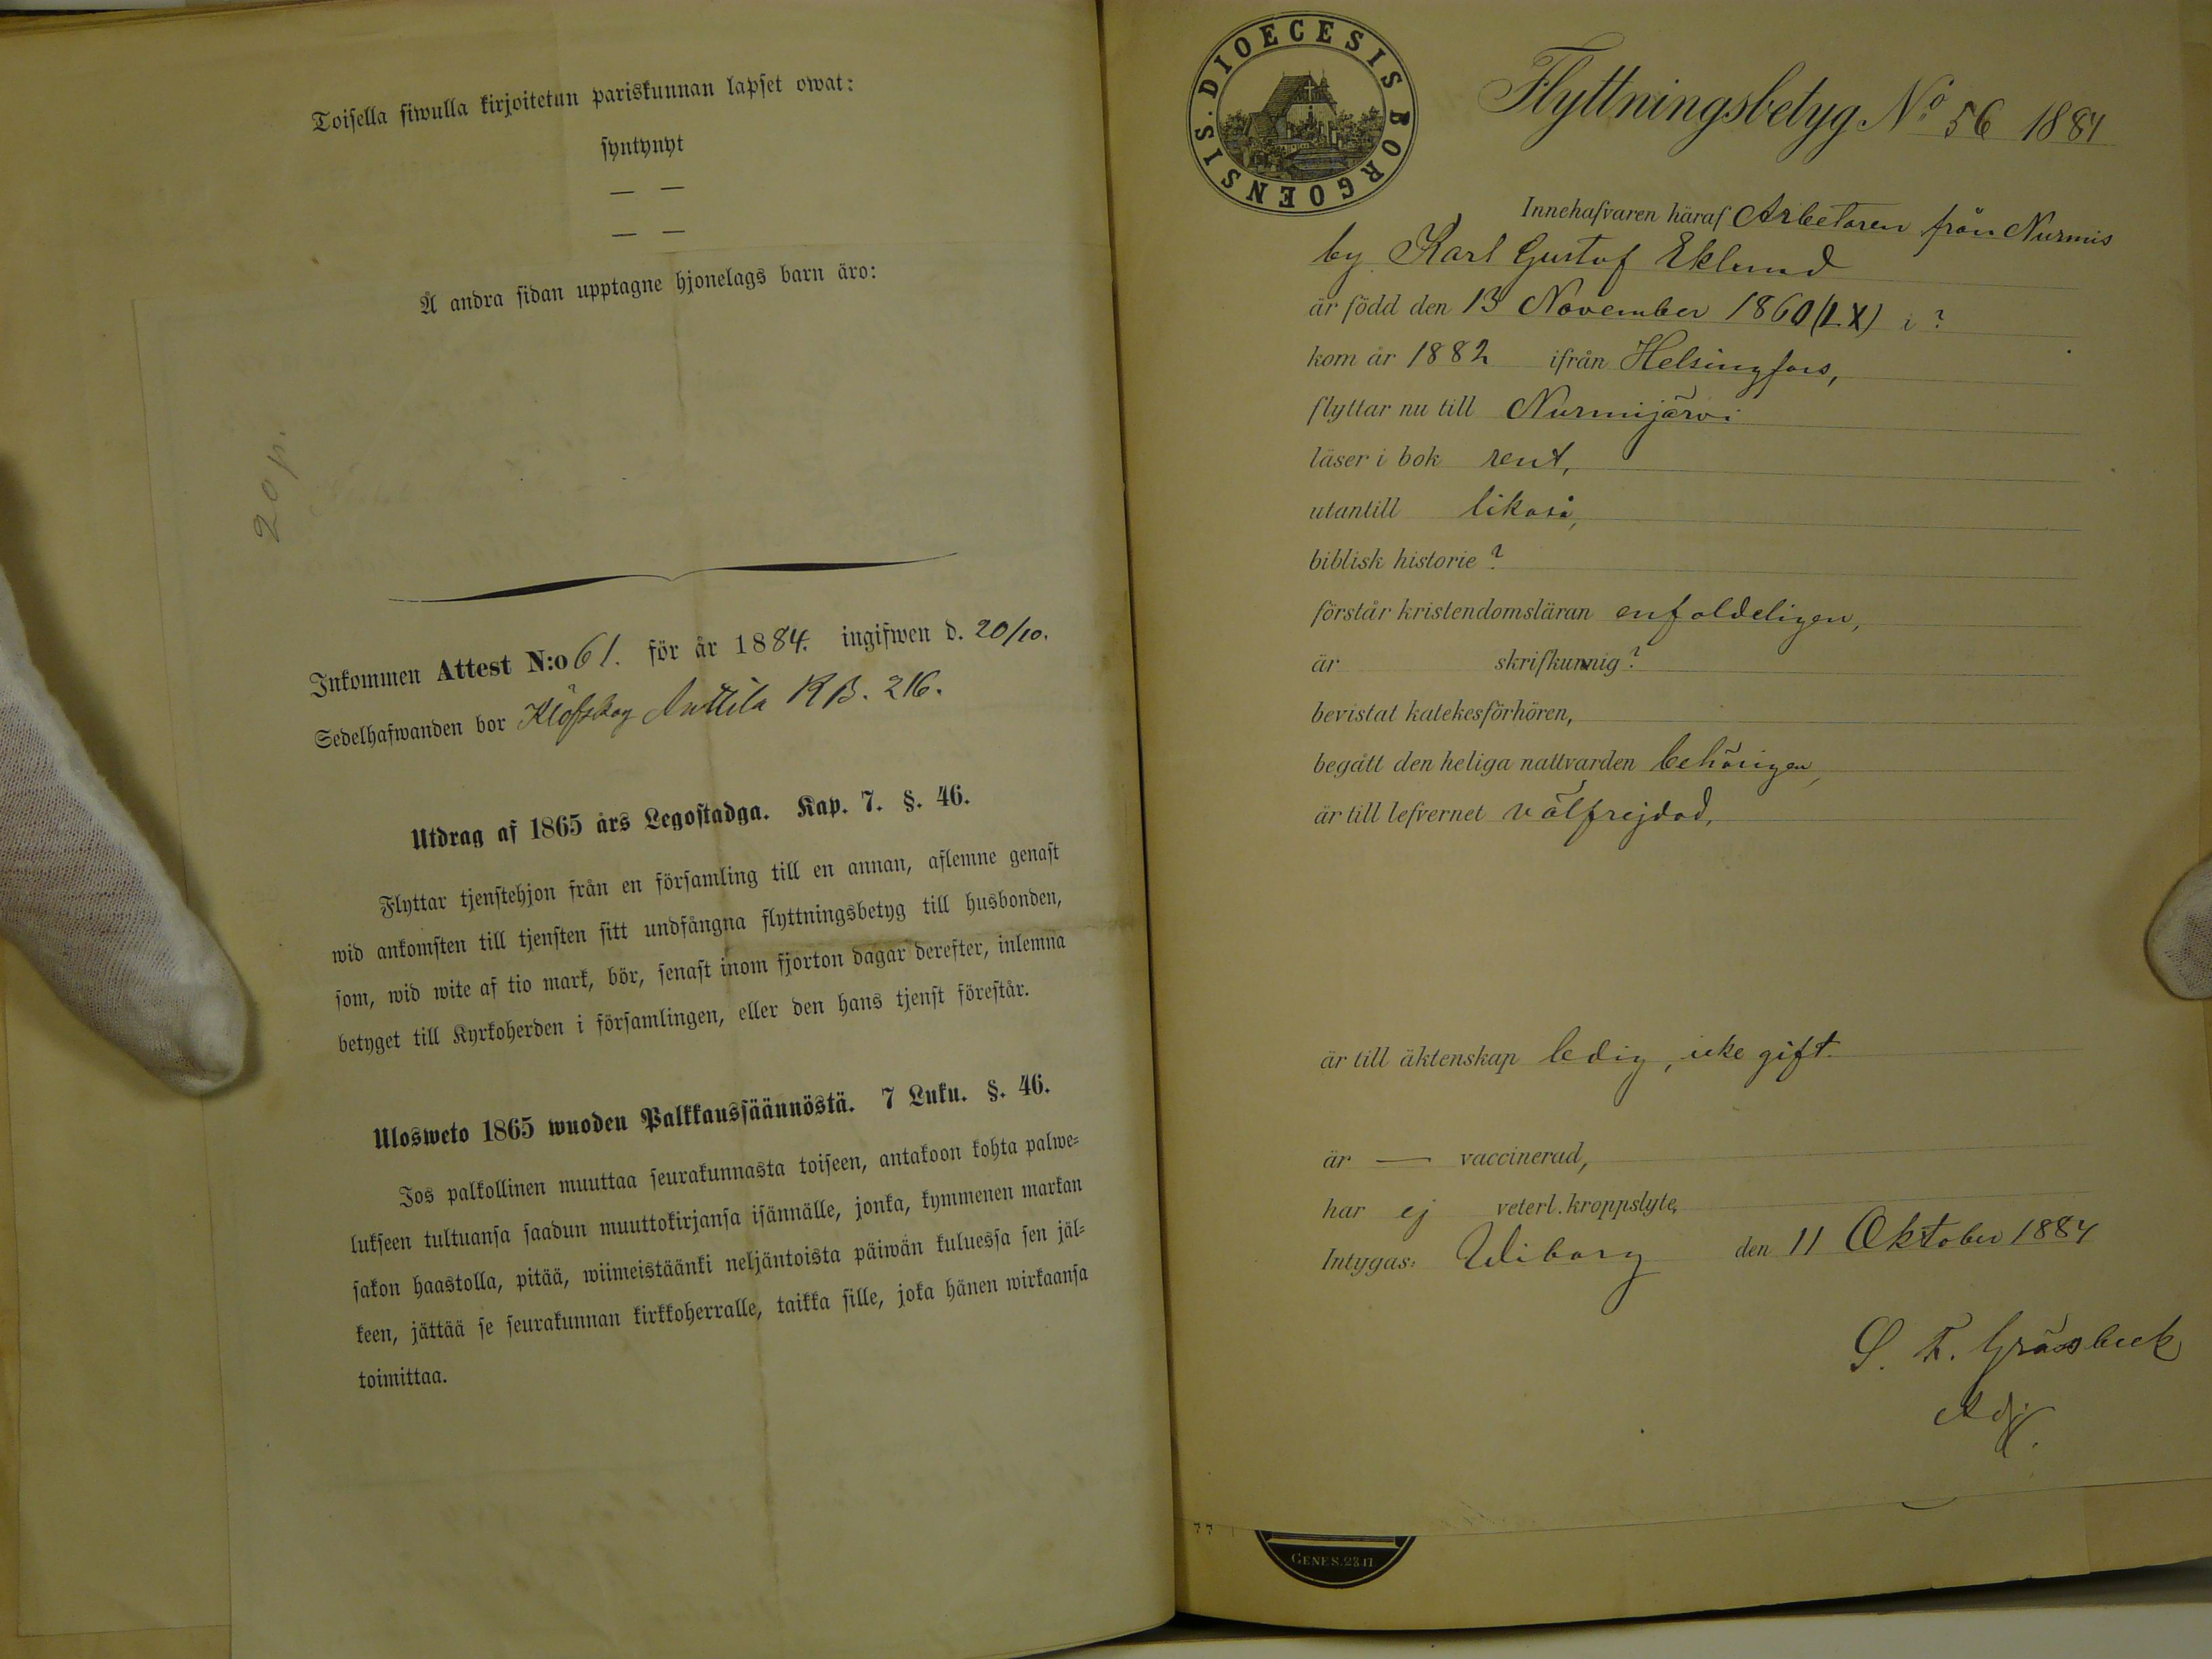 Toisella siwulla kirjoitetun pariskunnan lapset owat:
syntynyt
— —
— —
Å andra sidan upptagne hjonelags barn äro:
20 p.
Inkommen Attest N:o 61. för år 1884. ingifwen d. 20/10.
Sedelhafwanden bor Klöfskog Anttila KB. 216.
Utdrag af 1865 års Legostadga. Kap. 7. §. 46.
Flyttar tjenstehjon från en församling till en annan, aflemne genast
wid ankomsten till tjensten sitt undfångna flyttningsbetyg till husbonden,
som, wid wite af tio mark, bör, senast inom fjorton dagar derefter, inlemna
betyget till Kyrkoherden i församlingen, eller den hans tjenst förestår.
Ulosweto 1865 wuoden Palkkaussäännöstä. 7 Luku. §. 46.
Jos palkollinen muuttaa seurakunnasta toiseen, antakoon kohta palwe-
lukseen tultuansa saadun muuttokirjansa isännälle, jonka, kymmenen markan
sakon haastolla, pitää, wiimeistäänki neljäntoista päiwän kuluessa sen jäl-
keen, jättää se seurakunnan kirkkoherralle, taikka sille, joka hänen wirkaansa
toimittaa.
DIOECESIS BORGOENSIS.
Flyttningsbetyg No 56 1884
Innehafvaren häraf Arbetaren från Nurmis
by Karl Gustaf Eklund
är född den 13 November 1860 (LX) i ?
kom år 1882 ifrån Helsingfors,
flyttar nu till Nurmijärvi
läser i bok rent,
utantill likaså,
biblisk historie ?
förstår kristendomsläran enfaldeligen,
är skrifkunnig ?
bevistat katekesförhören,
begått den heliga nattvarden behörigen,
är till lefvernet välfrejdad,
är till äktenskap ledig, icke gift.
är — vaccinerad,
har ej veterl. kroppslyte,
Intygas: Wiborg den 11 Oktober 1884
S. F. Gräsbeck
Adj.
GENES. 28 17